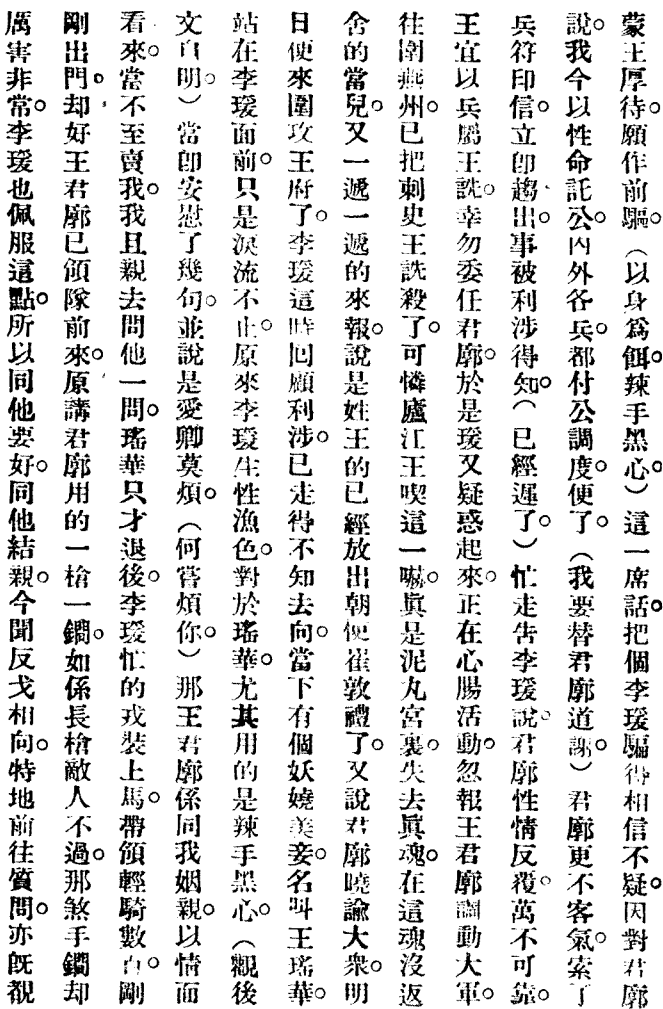 蒙王厚待。願作前驅。（以身爲餌。辣手黑心。）這一席話。把個李瑗騙得相信不疑。因對君廓
說。我今以性命託公。內外各兵。都付公調度便了。（我要替君廓道謝。）君廓更不客氣。索了
兵符印信。立卽趨出。事被利涉得知。（已經遲了。）忙走告李瑗說。君廓性情反覆。萬不可靠。
王宜以兵屬王詵。幸勿委任君廓。於是瑗又疑惑起來。正在心腸活動。忽報王君廓調動大軍。
往圍燕州。已把刺史王詵殺了。可憐廬江王喫這一嚇。眞是泥丸宮裏。失去眞魂。在這魂沒返
舍的當兒。又一遞一遞的來報。說是姓王的已經放出朝使崔敦禮了。又說君廓曉諭大衆。明
日便來圍攻王府了。李瑗這時回顧利涉。已走得不知去向。當下有個妖嬈美妾。名叫王瑤華。
站在李瑗面前。只是淚流不止。原來李瑗生性漁色。對於瑤華。尤其用的是辣手黑心。（觀後
文自明。）當卽安慰了幾句。並說是愛卿莫煩。（何嘗煩你。）那王君廓係同我姻親。以情面
看來。當不至賣我。我且親去問他一問。瑤華只才退後。李瑗忙的戎裝上馬。帶領輕騎數百。剛
剛出門。却好王君廓已領隊前來。原講君廓用的一槍一鐧。如係長槍敵人不過。那煞手鐧却
厲害非常。李瑗也佩服這點。所以同他要好。同他結親。今聞反戈相向。特地前往質問。亦旣覩